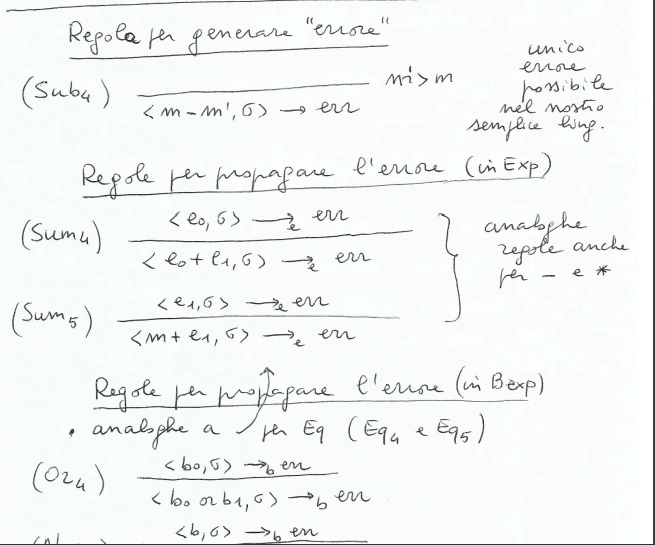 Regola per generare "errore"
(Sub4) <m-m', σ> → err m'>m
unico
errore
possibile
nel nostro
semplice ling.
Regole per propagare l'errore (in Exp)
(Sum4) <e0, σ> →e err
<e0+e1, σ> →e err
(Sum5) <e1, σ> →e err
<m+e1, σ> →e err
analoghe
regole anche
per - e *
Regole per propagare l'errore (in Bexp)
• analoghe a per Eq (Eq4 e Eq5)
(Or4) <b0, σ> →b err
<b0 or b1, σ> →b err
<b, σ> →b err